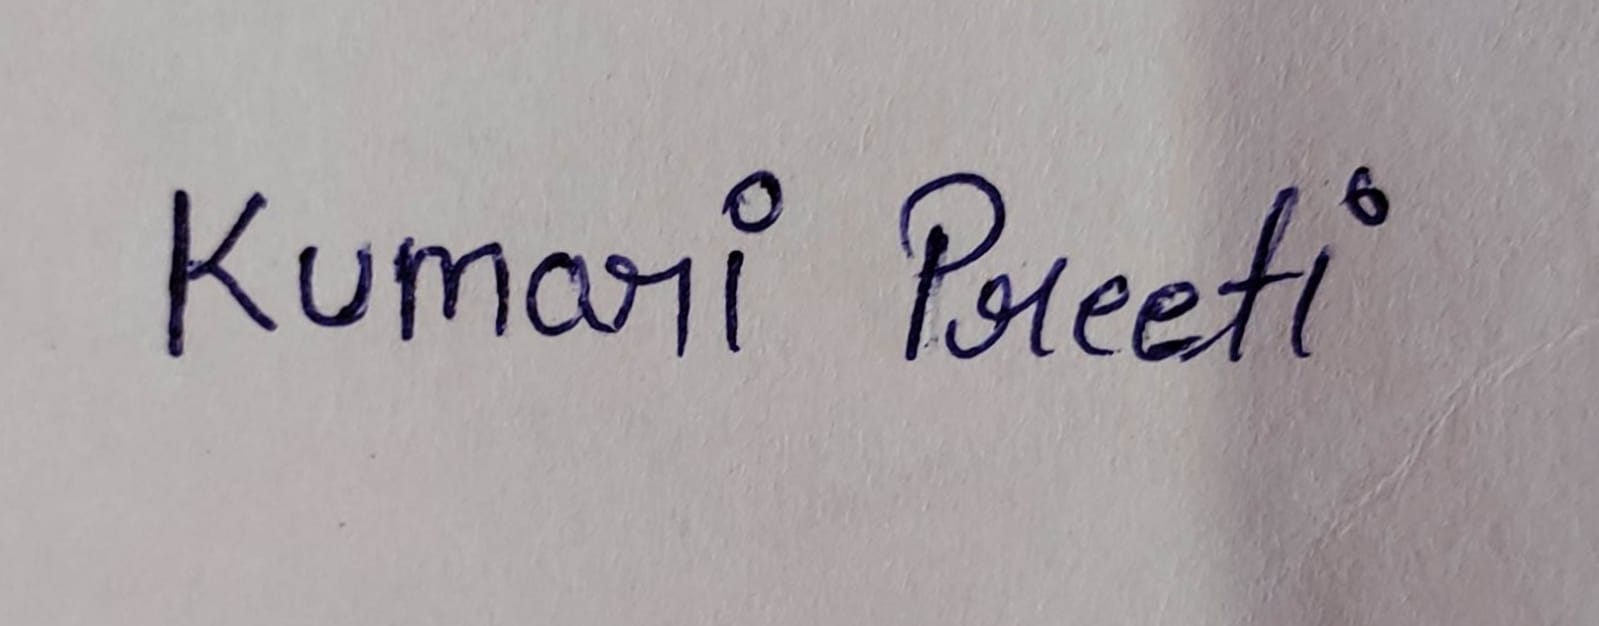 Kumari Preeti